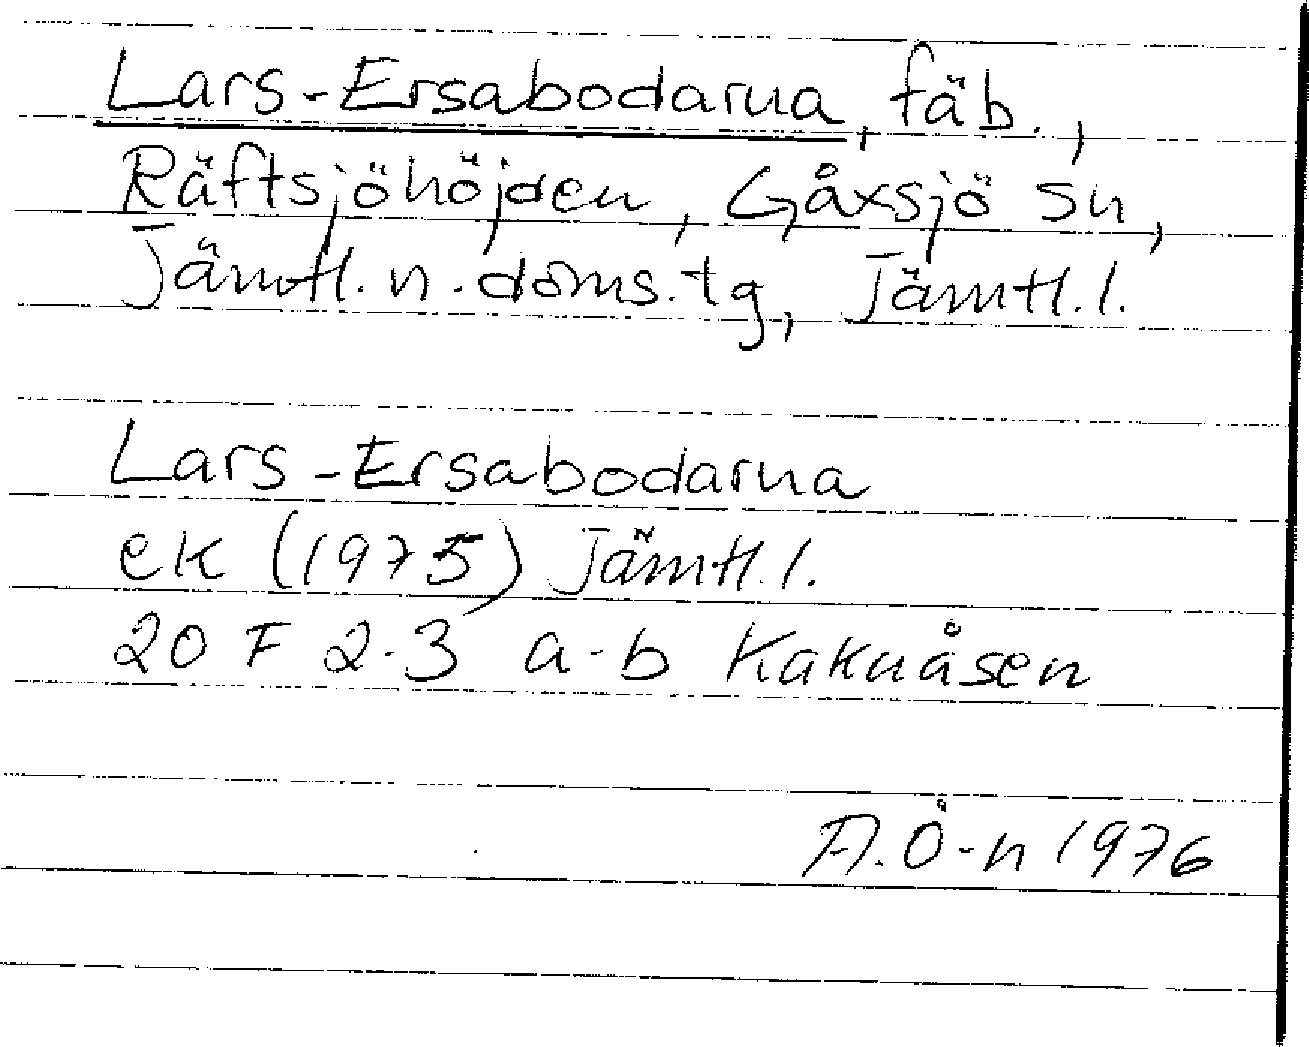 Lars-Ersabodarna, fäb.,
Räftsjöhöjden, Gåxsjö sn,
Jämtl. n. doms. tg, Jämtl. l.
Lars-Ersabodarna
ek (1975) Jämtl. l.
20 F 2-3 a-b Kaknåsen
A. Ö-n 1976